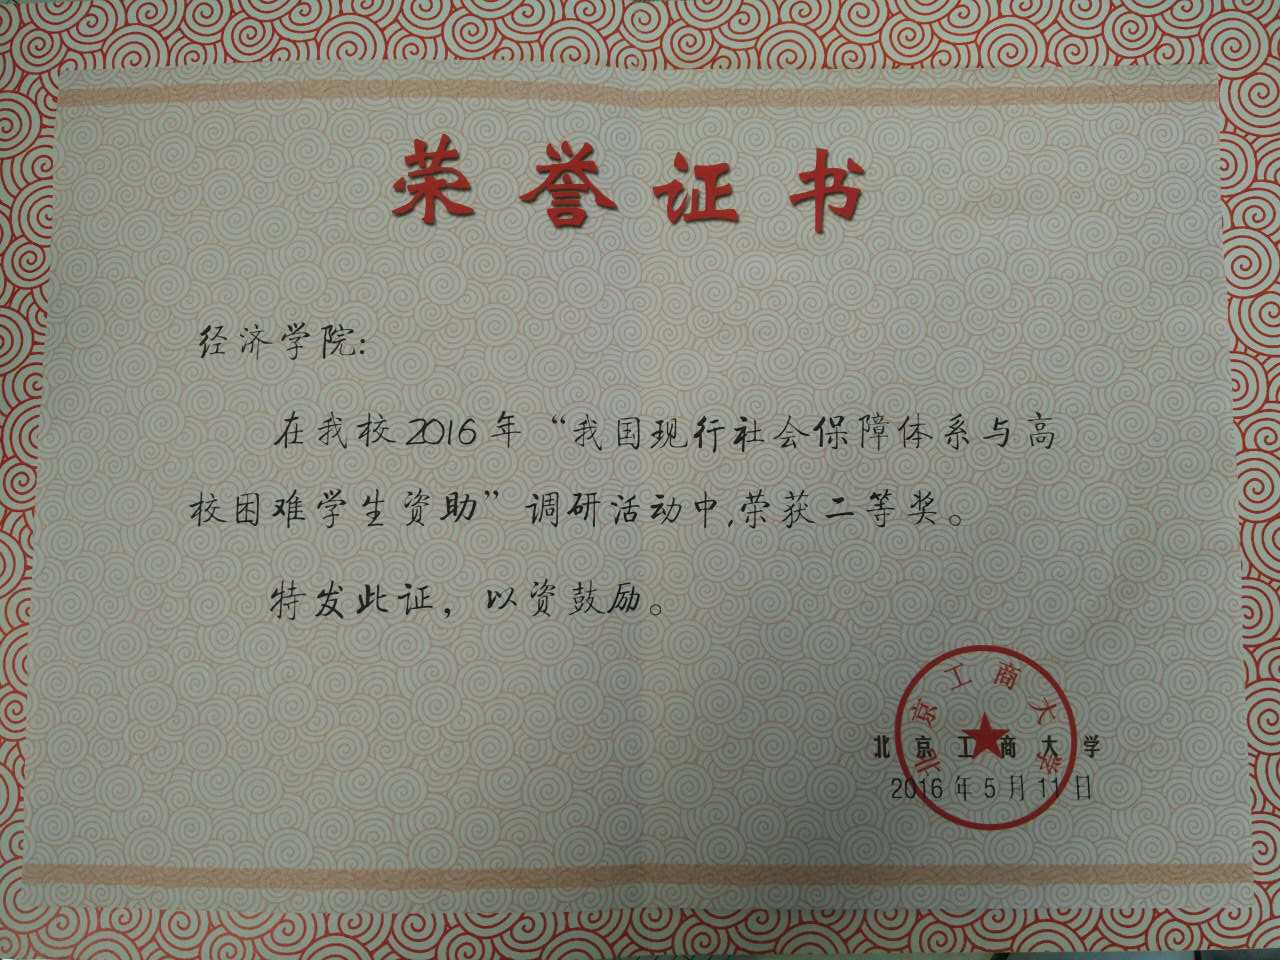 荣誉证书
经济学院:
在我校2016年“我国现行社会保障体系与高
校困难学生资助”调研活动中,荣获二等奖。
特发此证，以资鼓励。
北京工商大学
北京工商大学
2016年5月11日